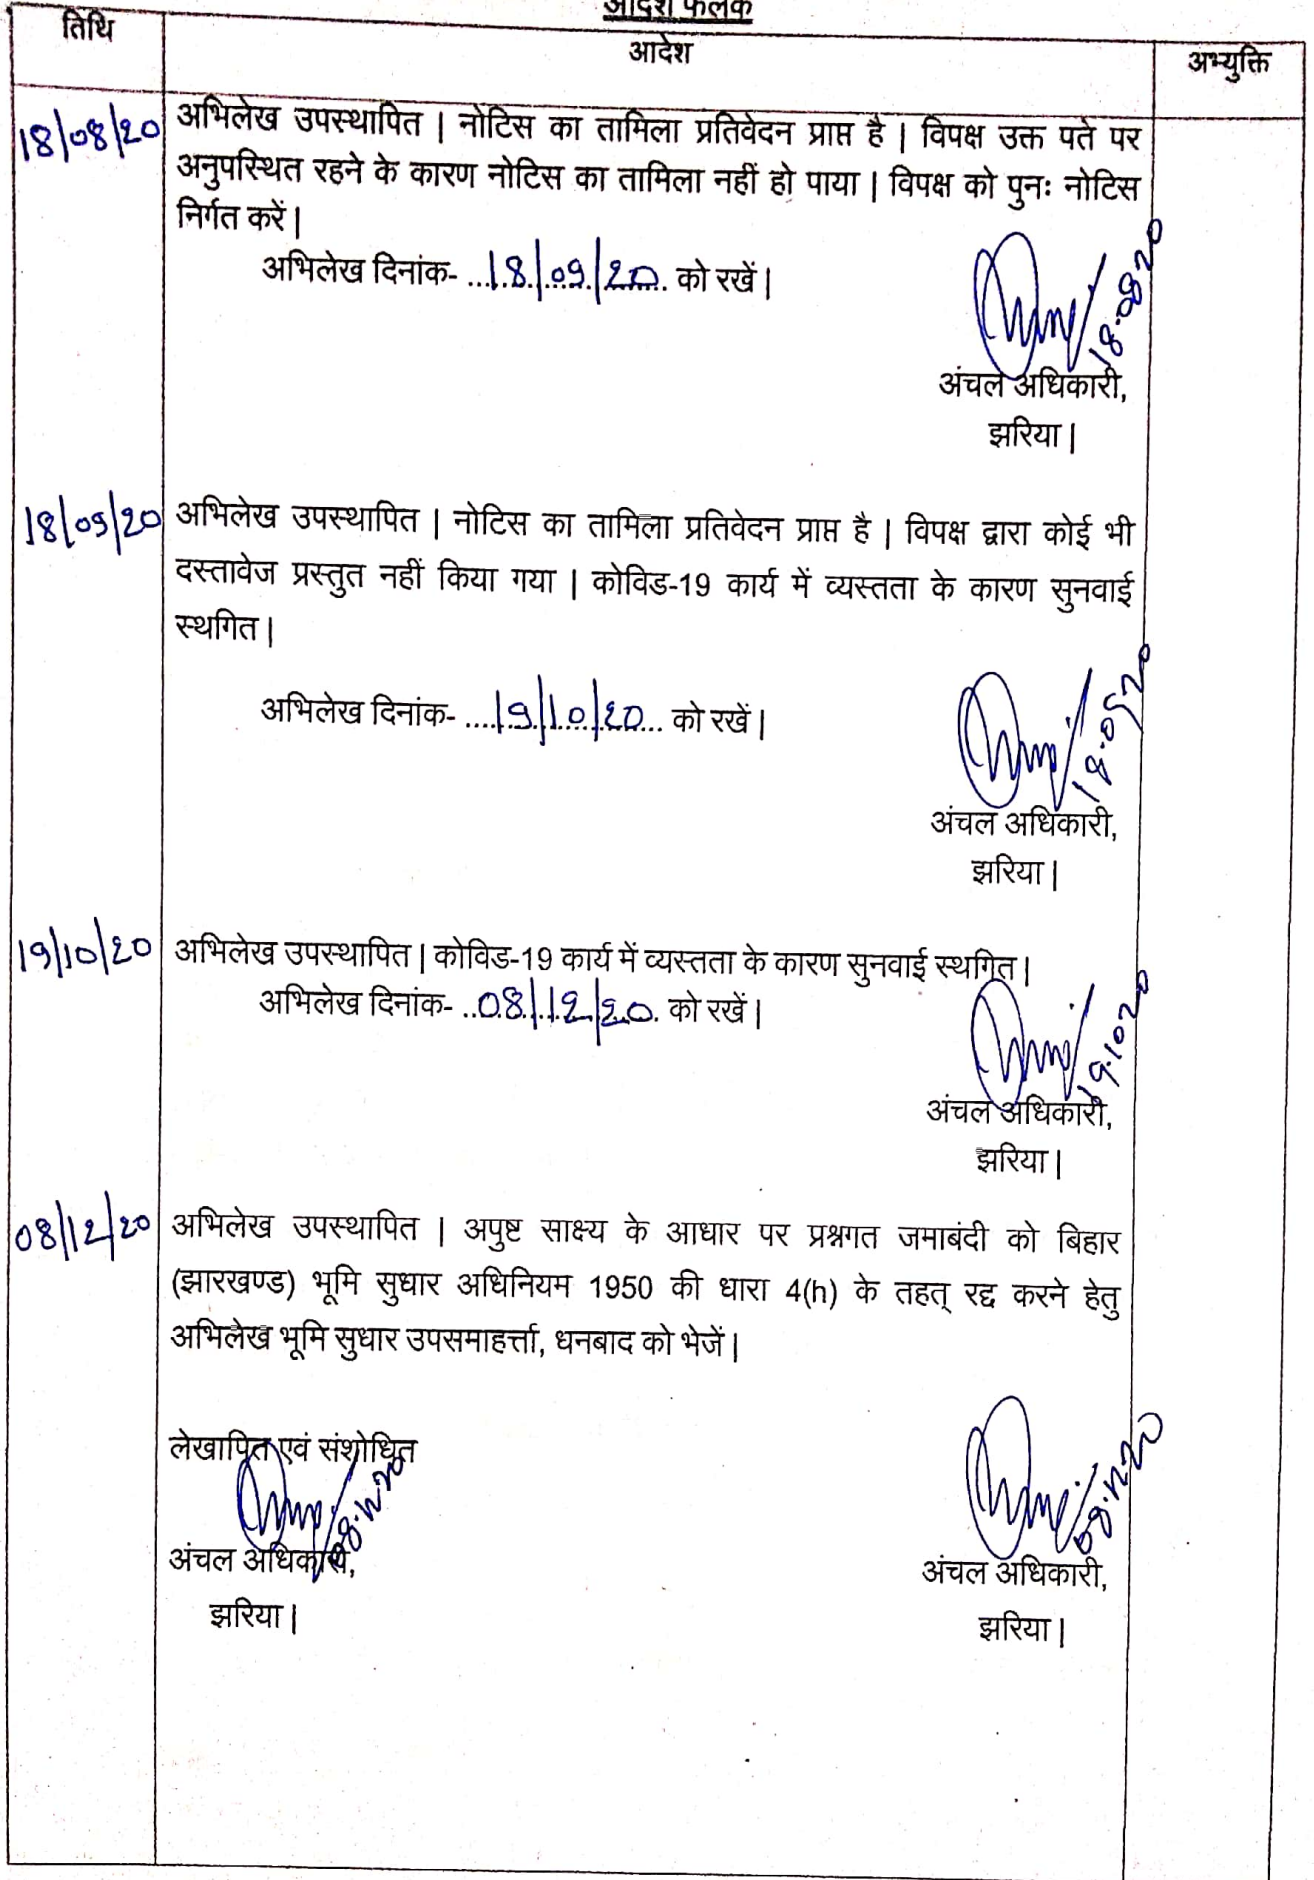 आदेश फलक
तिथि
आदेश
अभ्युक्ति
18/08/20
अभिलेख उपस्थापित | नोटिस का तामिला प्रतिवेदन प्राप्त है | विपक्ष उक्त पते पर
अनुपस्थित रहने के कारण नोटिस का तामिला नहीं हो पाया | विपक्ष को पुनः नोटिस
निर्गत करें |
अभिलेख दिनांक- ...18/09/20... को रखें |
18.08.20
अंचल अधिकारी,
झरिया |
18/09/20
अभिलेख उपस्थापित | नोटिस का तामिला प्रतिवेदन प्राप्त है | विपक्ष द्वारा कोई भी
दस्तावेज प्रस्तुत नहीं किया गया | कोविड-19 कार्य में व्यस्तता के कारण सुनवाई
स्थगित |
अभिलेख दिनांक- ....19/10/20... को रखें |
18.09.20
अंचल अधिकारी,
झरिया |
19/10/20
अभिलेख उपस्थापित | कोविड-19 कार्य में व्यस्तता के कारण सुनवाई स्थगित |
अभिलेख दिनांक- ..08/12/20. को रखें |
19.10.20
अंचल अधिकारी,
झरिया |
08/12/20
अभिलेख उपस्थापित | अपुष्ट साक्ष्य के आधार पर प्रश्नगत जमाबंदी को बिहार
(झारखण्ड) भूमि सुधार अधिनियम 1950 की धारा 4(h) के तहत् रद्द करने हेतु
अभिलेख भूमि सुधार उपसमाहर्त्ता, धनबाद को भेजें |
लेखापित एवं संशोधित
08.12.20
08.12.20
अंचल अधिकारी,
अंचल अधिकारी,
झरिया |
झरिया |